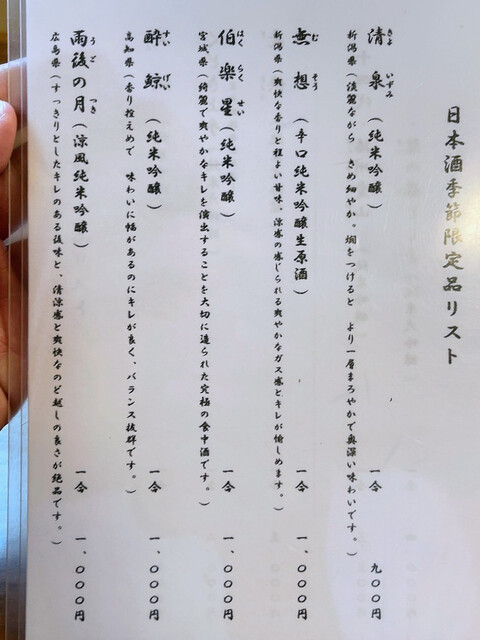 日本酒季節限定品リスト
清泉（純米吟醸） 一合 九〇〇円
きよ いずみ
新潟県（淡麗ながら きめ細やか。燗をつけると より一層まろやかで奥深い味わいです。）
無想（辛口純米吟醸生原酒） 一合 一、〇〇〇円
む そう
新潟県（爽快な香りと程よい甘味。涼感の感じられる爽やかなガス感とキレが愉しめます。）
伯楽星（純米吟醸） 一合 一、〇〇〇円
はく らく せい
宮城県（綺麗で爽やかなキレを演出することを大切に造られた究極の食中酒です。）
酔鯨（純米吟醸） 一合 一、〇〇〇円
すい げい
高知県（香り控えめで 味わいに幅があるのにキレが良く、バランス抜群です。）
雨後の月（涼風純米吟醸） 一合 一、〇〇〇円
う ご つき
広島県（すっきりとしたキレのある後味と、清涼感と爽快なのど越しの良さが絶品です。）